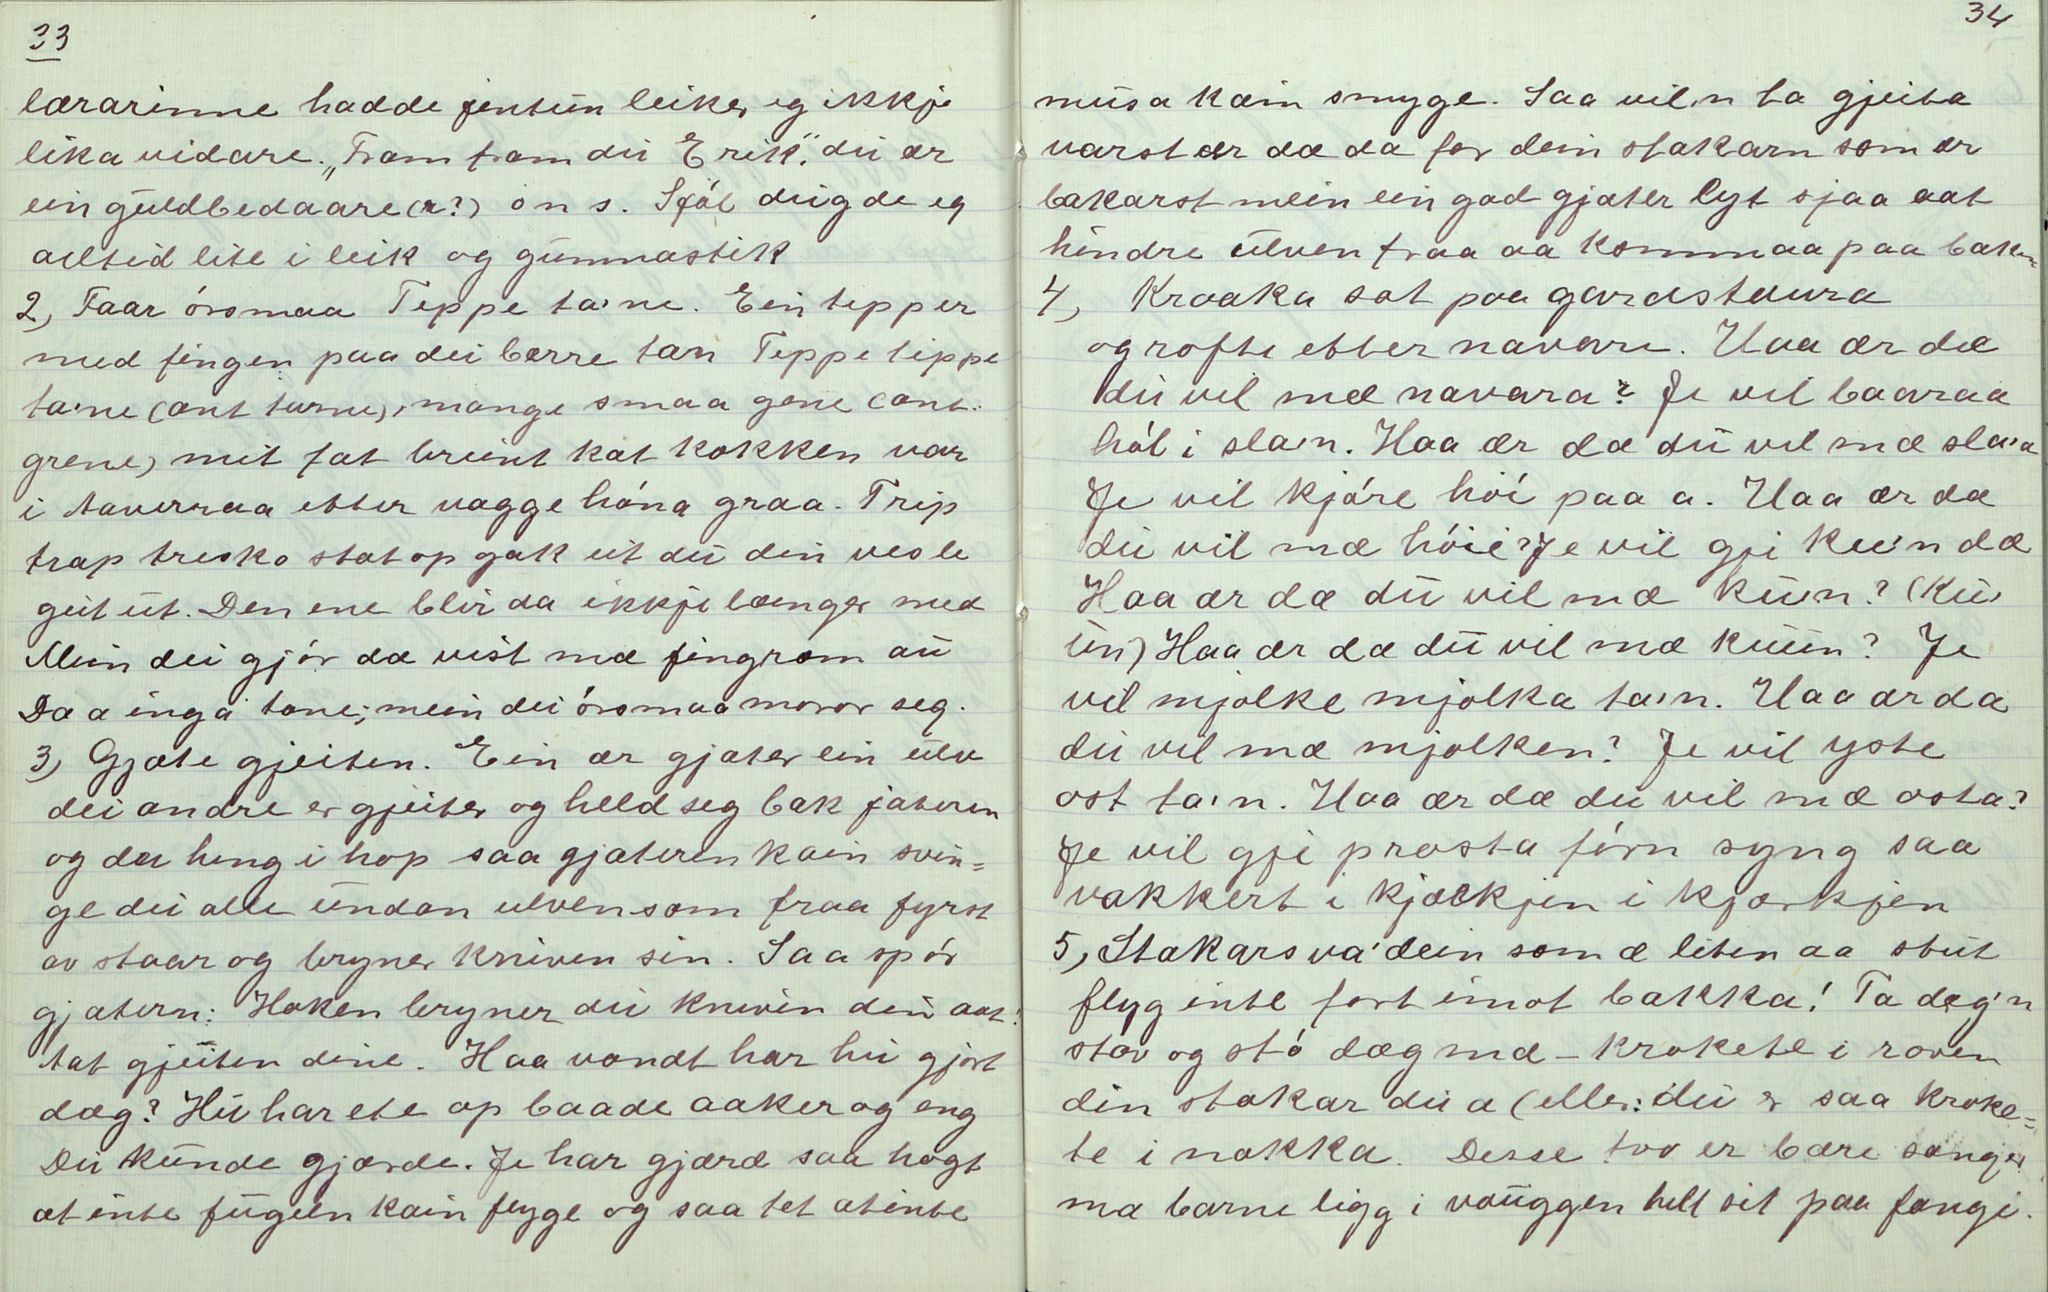 33
lærarinne hadde jentun leiker eg ikkje
lika vidare. „Fram fram du Erik", du ær
ein guldbedaare(r?) o n s. Sjól dugde eg
alltid lite i leik og gumnastik
2, Faar órsmaa Teppe ta'ne. Ein tepper
med fingen paa dei bærre tan Teppe tippe
ta'ne (ant turne), mange smaa gene (ant.
grene) mit fat brent kat kokken var
i Aaverraa etter vagge hóna graa. Trip
trap tresko stat op gak ut du den vesle
geit ut. Den ene blir da ikkje længer med
Mein dei gjór dæ vist mæ fingrom au
Dæ a inga tone; mein dei órsmaa moror seg.
3, Gjæte gjeiten. Ein ær gjæter ein ulv
dei andre er gjeiter og held seg bak jæteren
og dæ heng i hop saa gjæteren kain svin=
ge dei alle undan ulven som fraa fyrst
av staar og bryner kniven sin. Saa spór
gjætern: Haken bryner du kniven din aat?
Aat gjeiten dine. Haa vondt har hu gjort
dæg? Hu har ete op baade aaker og eng
Du kunde gjærde. Je har gjæræ saa høgt
at inte fugeln kain flyge og saa tet at inte
34
musa kain smyge. Saa vil'n ta gjeita
varst ær dæ da for dein stakarn som ær
bakarst mein ein god gjæter lyt sjaa aat
hindre ulven fraa aa kommaa paa baken
4, Kraaka sat paa gardstaura
og rofte etter navare. Haa ær dæ
du vil mæ navara? Je vil baaraa
hól i sla'n. Haa ær dæ du vil mæ sla'a
Je vil kjóre hói paa a. Haa ær dæ
du vil mæ hóie? Je vil gji ku'n dæ
Haa ær dæ du vil mæ ku'n? (Ku,
un) Haa ær dæ du vil mæ kuun? Je
vil mjolke mjolka ta'n. Haa ær dæ
du vil mæ mjolken? Je vil yste
ost ta'n. Haa ær dæ du vil mæ osta?
Je vil gji præsta fórn syng saa
vakkert i kjælkjen i kjærkjen
5, Stakars va' dein som æ liten aa stut
flyg inte fort imot bakka! Ta dæg'n
stav og stó dæg mæ – krokete i roven
din stakar du a (eller: du er saa kroke=
te i nakka. Desse tvo er bære sanger
mæ barne ligg i vauggen hell sit paa fangi.